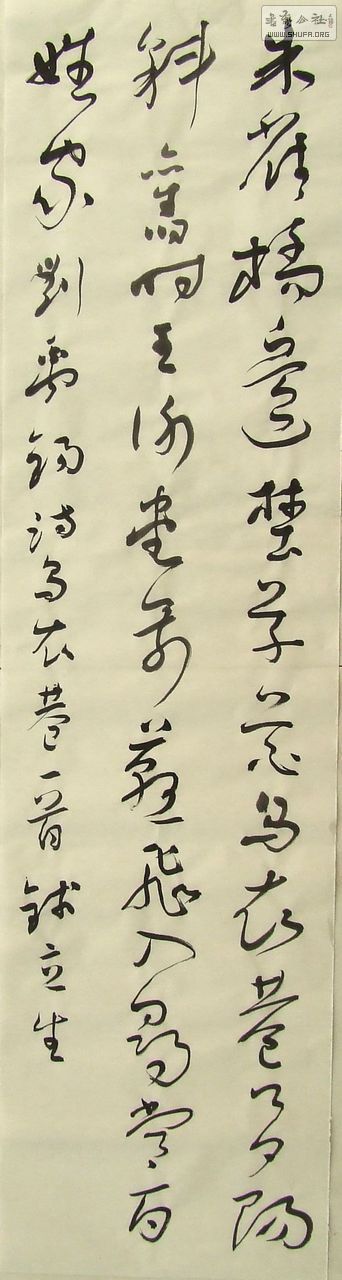 朱雀桥边野草花乌衣巷口夕阳
斜旧时王谢堂前燕飞入寻常百
姓家 刘禹锡诗乌衣巷一首 立生
WWW.SHUFA.ORG